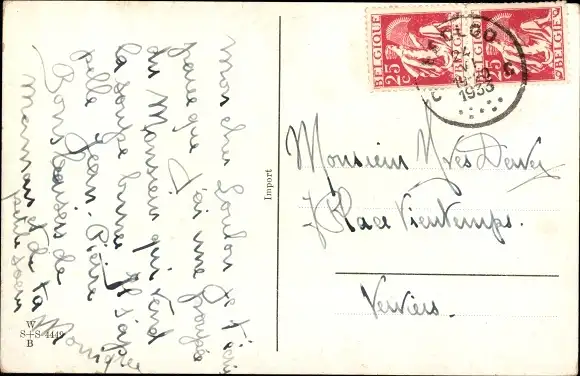 mon cher Loulou je t'écris
parce que j'ai une poupée
du Monsieur qui vend
la soupe bonne et s'ap
pelle Jean-Pierre
Bons baisers de
maman et de ta
petite soeur
Monique
W
S+S 4449
B
Import
BELGIQUE 25c BELGIE
BELGIQUE 25c BELGIE
1933
Monsieur Yves Dewez
7 Place Vieuxtemps.
Verviers.